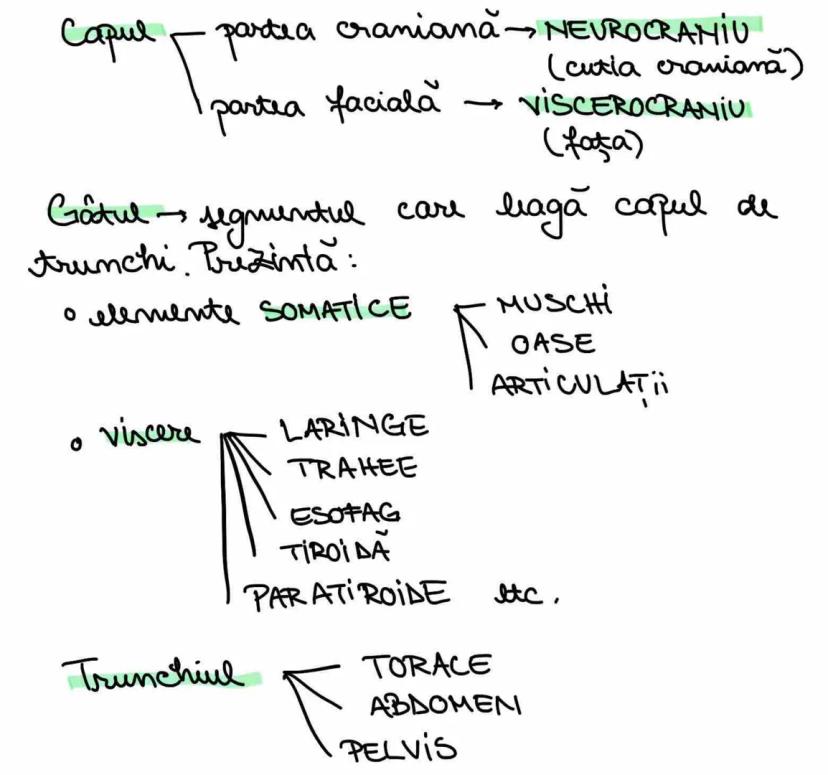 Capul partea craniană → NEUROCRANIU
(cutia craniană)
partea facială → VISCEROCRANIU
(fața)
Gâtul → segmentul care leagă capul de
trunchi. Prezintă:
o elemente SOMATICE MUSCHI
OASE
ARTICULAȚII
o viscere LARINGE
TRAHEE
ESOFAG
TIROIDĂ
PARATIROIDE etc.
Trunchiul TORACE
ABDOMEN
PELVIS